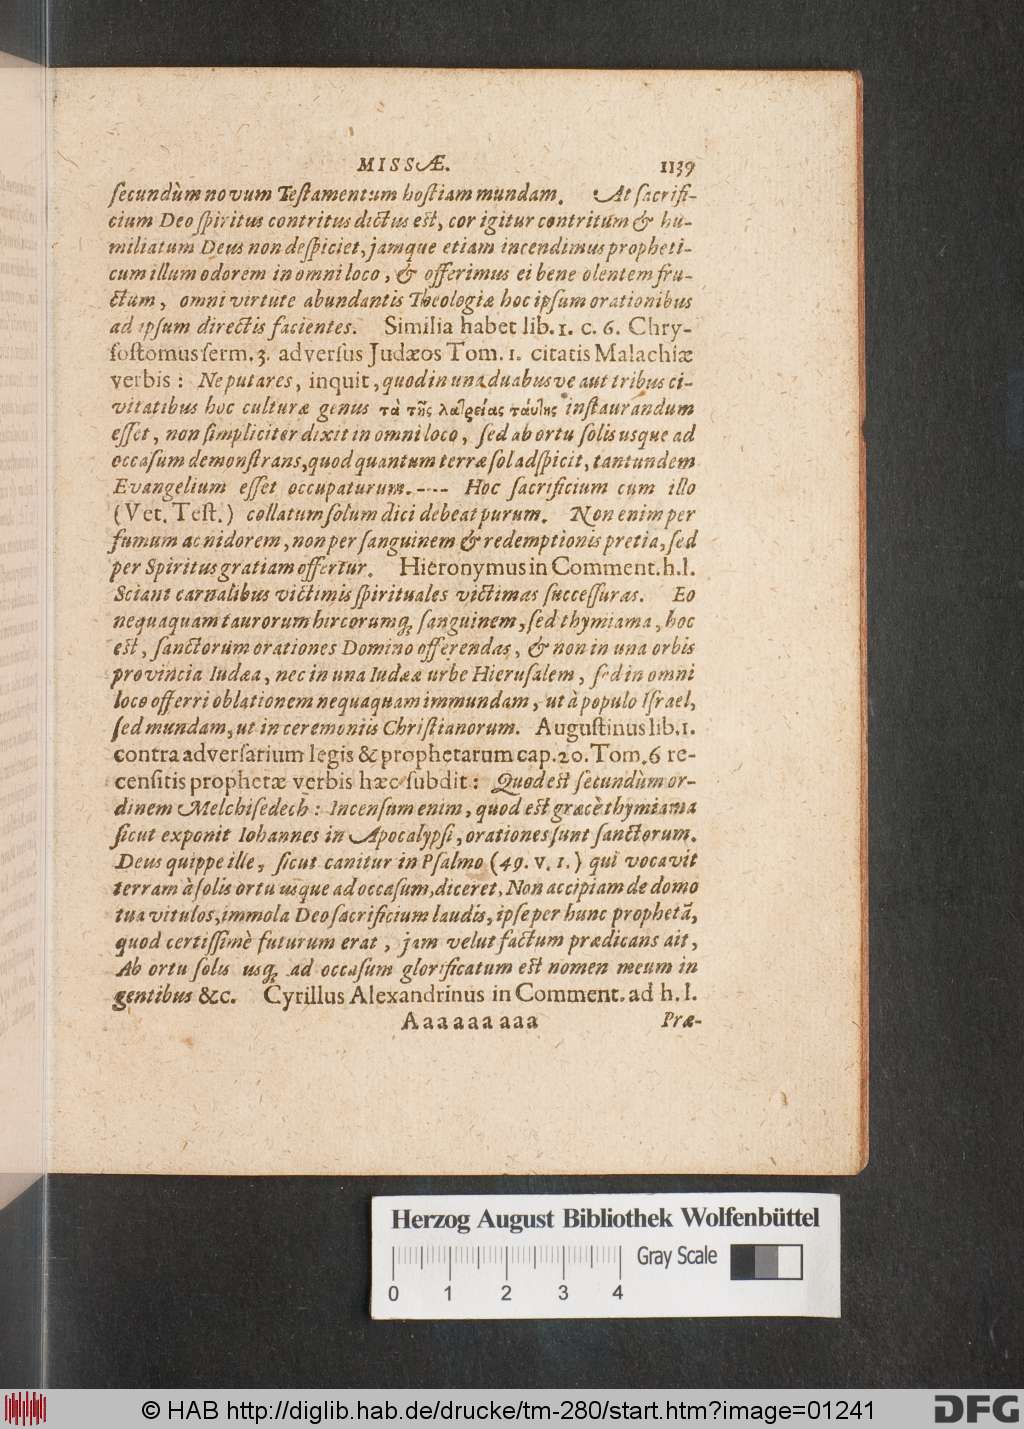 MISSÆ. 1139
secundùm novum Testamentum hostiam mundam. At sacrifi-
cium Deo spiritus contritus dictus est, cor igitur contritum & hu-
miliatum Deus non despiciet, jamque etiam incendimus propheti-
cum illum odorem in omni loco, & offerimus ei bene olentem fru-
ctum, omni virtute abundantis Theologiæ hoc ipsum orationibus
ad ipsum directis facientes. Similia habet lib. 1. c. 6. Chry-
sostomus serm. 3. adversus Judæos Tom. 1. citatis Malachiæ
verbis: Ne putares, inquit, quod in una duabusve aut tribus ci-
vitatibus hoc culturæ genus τὰ τῆς λατρείας ταύτης instaurandum
esset, non simpliciter dixit in omni loco, sed ab ortu solis usque ad
occasum demonstrans, quod quantum terræ sol adspicit, tantundem
Evangelium esset occupaturum. ---- Hoc sacrificium cum illo
(Vet. Test.) collatum solum dici debeat purum. Non enim per
fumum ac nidorem, non per sanguinem & redemptionis pretia, sed
per Spiritus gratiam offertur. Hieronymus in Comment. h. l.
Sciant carnalibus victimis spirituales victimas successuras. Eo
nequaquam taurorum hircorumq; sanguinem, sed thymiama, hoc
est, sanctorum orationes Domino offerendas, & non in una orbis
provincia Iudæa, nec in una Iudææ urbe Hierusalem, sed in omni
loco offerri oblationem nequaquam immundam, ut à populo Israel,
sed mundam, ut in ceremoniis Christianorum. Augustinus lib. 1.
contra adversarium legis & prophetarum cap. 20. Tom. 6 re-
censitis prophetæ verbis hæc subdit: Quod est secundùm or-
dinem Melchisedech: Incensum enim, quod est græcè thymiama
sicut exponit Iohannes in Apocalypsi, orationes sunt sanctorum.
Deus quippe ille, sicut canitur in Psalmo (49. v. 1.) qui vocavit
terram à solis ortu usque ad occasum, diceret, Non accipiam de domo
tua vitulos, immola Deo sacrificium laudis, ipse per hunc prophetã,
quod certissimè futurum erat, jam velut factum prædicans ait,
Ab ortu solis usq; ad occasum glorificatum est nomen meum in
gentibus &c. Cyrillus Alexandrinus in Comment. ad h. l.
Aaaaaaa aaa Præ-
Herzog August Bibliothek Wolfenbüttel
Gray Scale
0 1 2 3 4
© HAB http://diglib.hab.de/drucke/tm-280/start.htm?image=01241
DFG